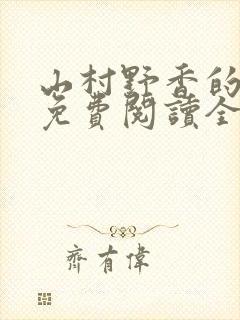 山村野香的
免費閱讀全
齊有偉